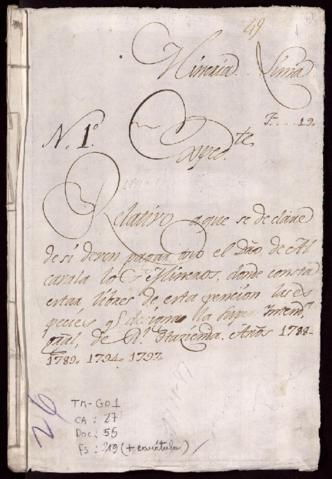 49
Mineria. Lima
F.... 19.
N. 1º
Expedte
Relativo a que se declare
de si deven pagar ono el Dro de Al
cavala los Mineros, donde consta
estar libres de esta pencion las es
pecies qe la Super Intend.
de Rl Hazienda. Años 1788-
1789. 1794. 1797.
26
TM-GO1
CA: 27
DOC: 55
FS: 219 (+ carátula)